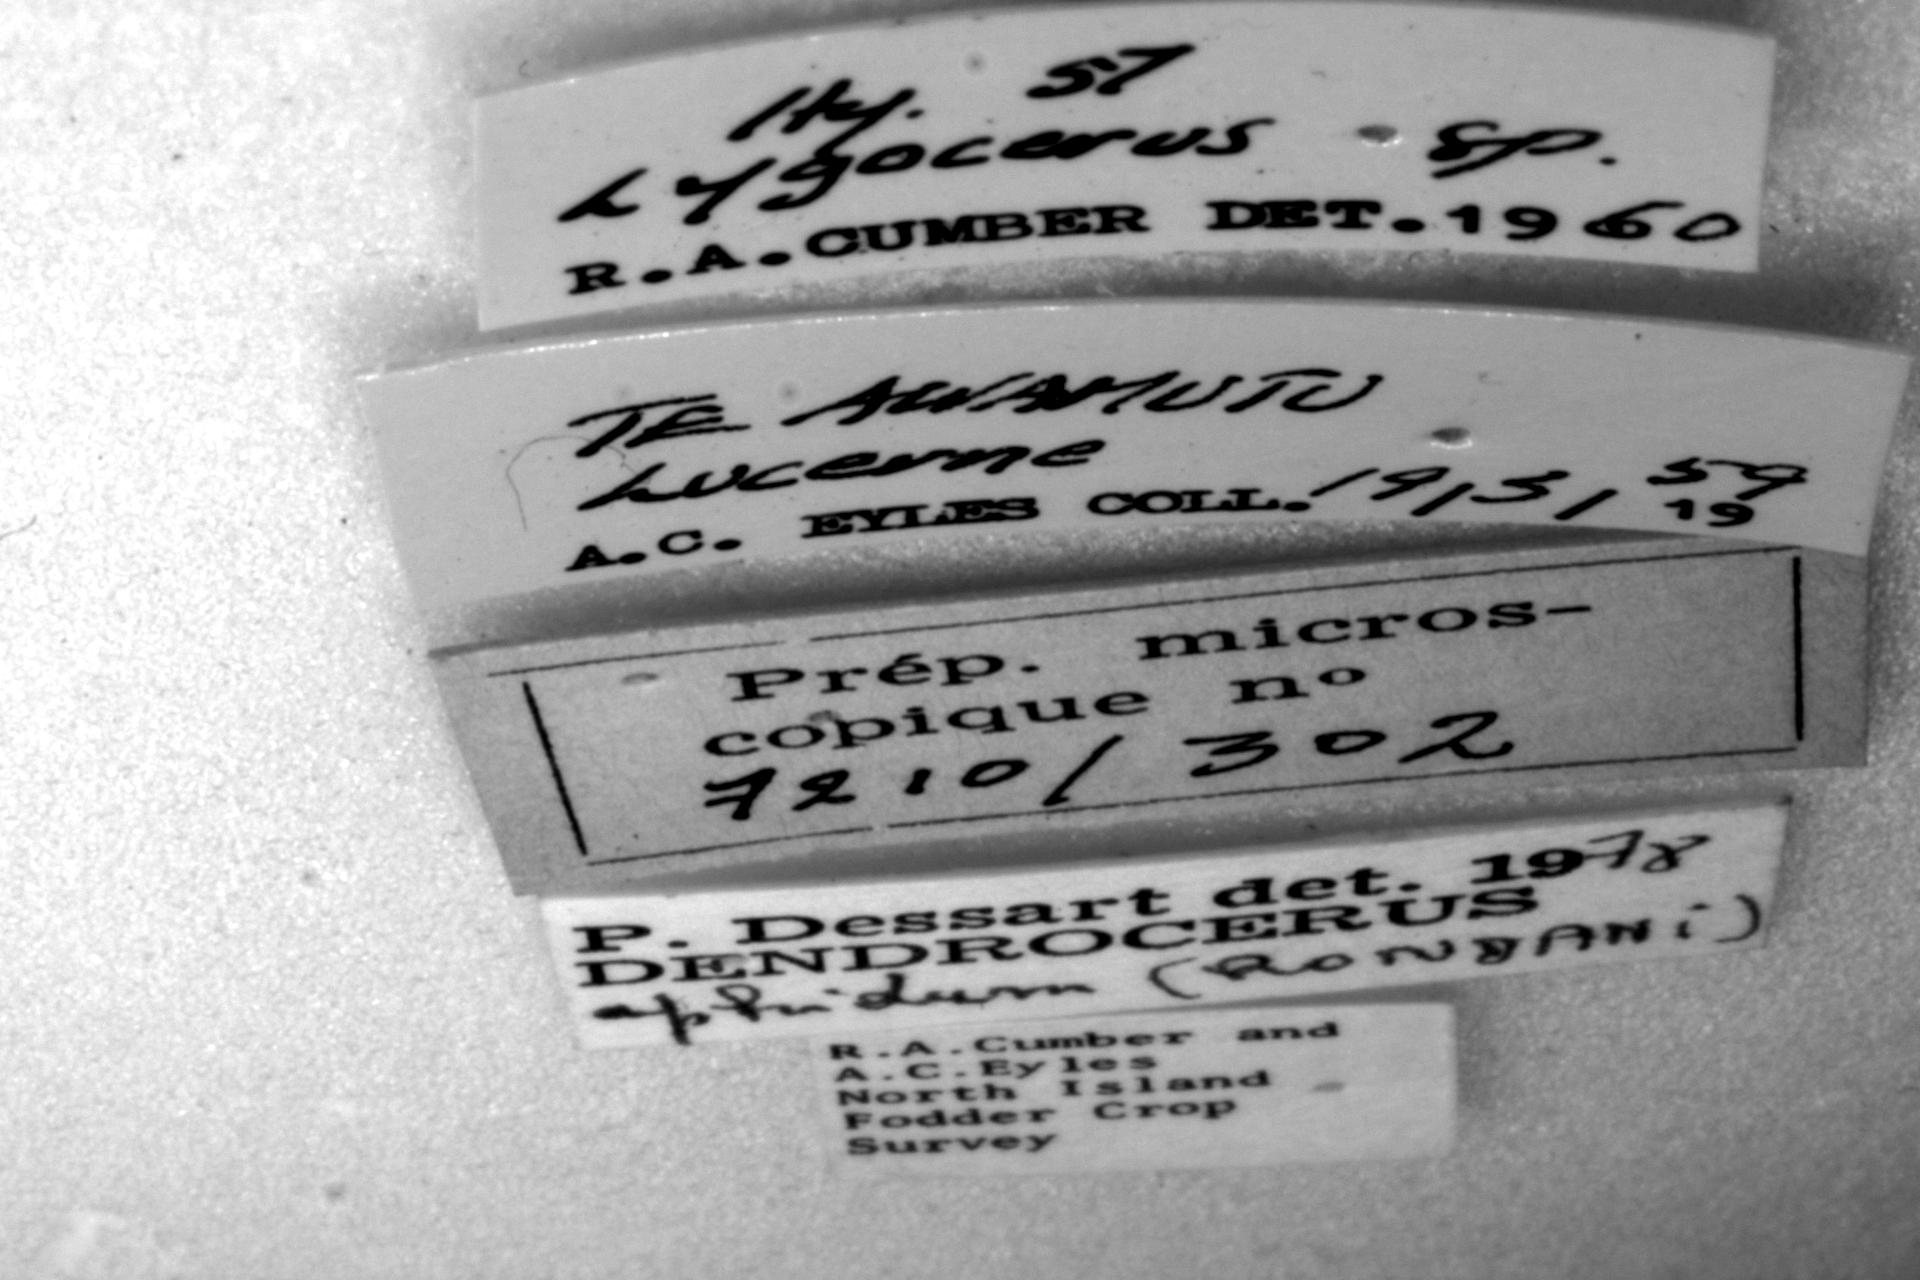 Hy. 57
Lygocerus sp.
R.A.CUMBER DET.1960
TE AWAMUTU
Lucerne
A.C. EYLES COLL. 19/3/ 59
19
Prép. micros-
copique no
7210/302
P. Dessart det. 1978
DENDROCERUS
aphidum (RONDANI)
R.A.Cumber and
A.C.Eyles
North Island
Fodder Crop
Survey